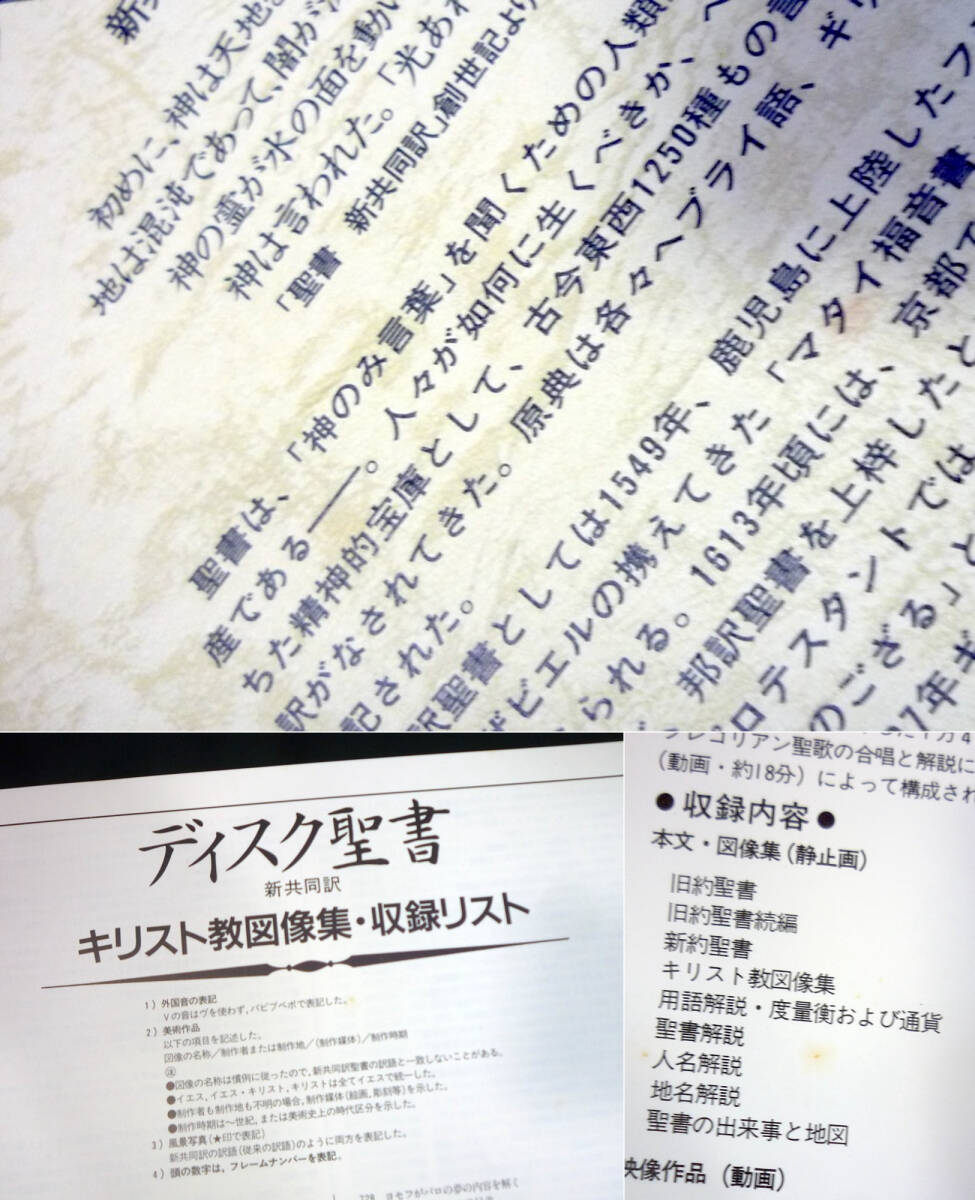 新共
初めに、神は天地
地は混沌であって、闇が
神の霊が水の面を動
神は言われた。「光あれ
「聖書 新共同訳」創世記より
聖書は、「神のみ言葉」を聞くための人類
産である――。人々が如何に生くべきか、
ちた精神的宝庫として、古今東西1250種もの言
訳がなされてきた。原典は各々ヘブライ語、ギリ
記された。
訳聖書としては1549年、鹿児島に上陸したフ
ザビエルの携えてきた「マタイ福音書
られる。1613年頃には、京都で
邦訳聖書を上梓したと
ロテスタントでは
のござる」と
7年ギ
ディスク聖書
新共同訳
キリスト教図像集・収録リスト
1）外国音の表記
Vの音はヴを使わず，バビブベボで表記した。
2）美術作品
以下の項目を記述した。
図像の名称／制作者または制作地／（制作媒体）／制作時期
㊟
●図像の名称は慣例に従ったので，新共同訳聖書の訳語と一致しないことがある。
●イエス，イエス・キリスト，キリストは全てイエスで統一した。
●制作者も制作地も不明の場合，制作媒体（絵画，彫刻等）を示した。
●制作時期は～世紀，または美術史上の時代区分を示した。
3）風景写真（★印で表記）
新共同訳の訳語（従来の訳語）のように両方を表記した。
4）頭の数字は，フレームナンバーを表記。
228 ヨセフがパロの夢の内容を解く
グレゴリアン聖歌の合唱と解説に
（動画・約18分）によって構成され
●収録内容●
本文・図像集（静止画）
旧約聖書
旧約聖書続編
新約聖書
キリスト教図像集
用語解説・度量衡および通貨
聖書解説
人名解説
地名解説
聖書の出来事と地図
映像作品（動画）